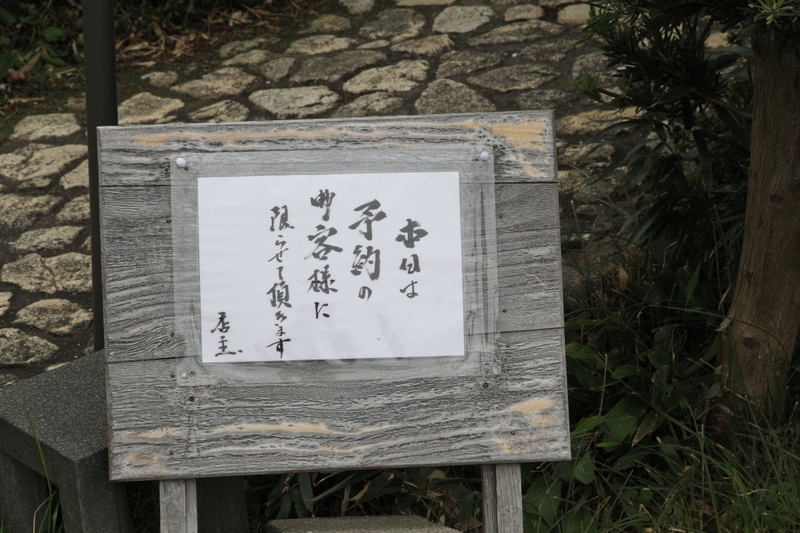 本日は
予約の
御客様に
限らせて頂きます
店主